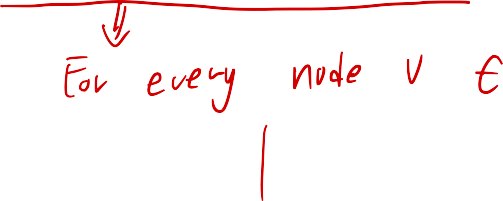 For every node v ∈